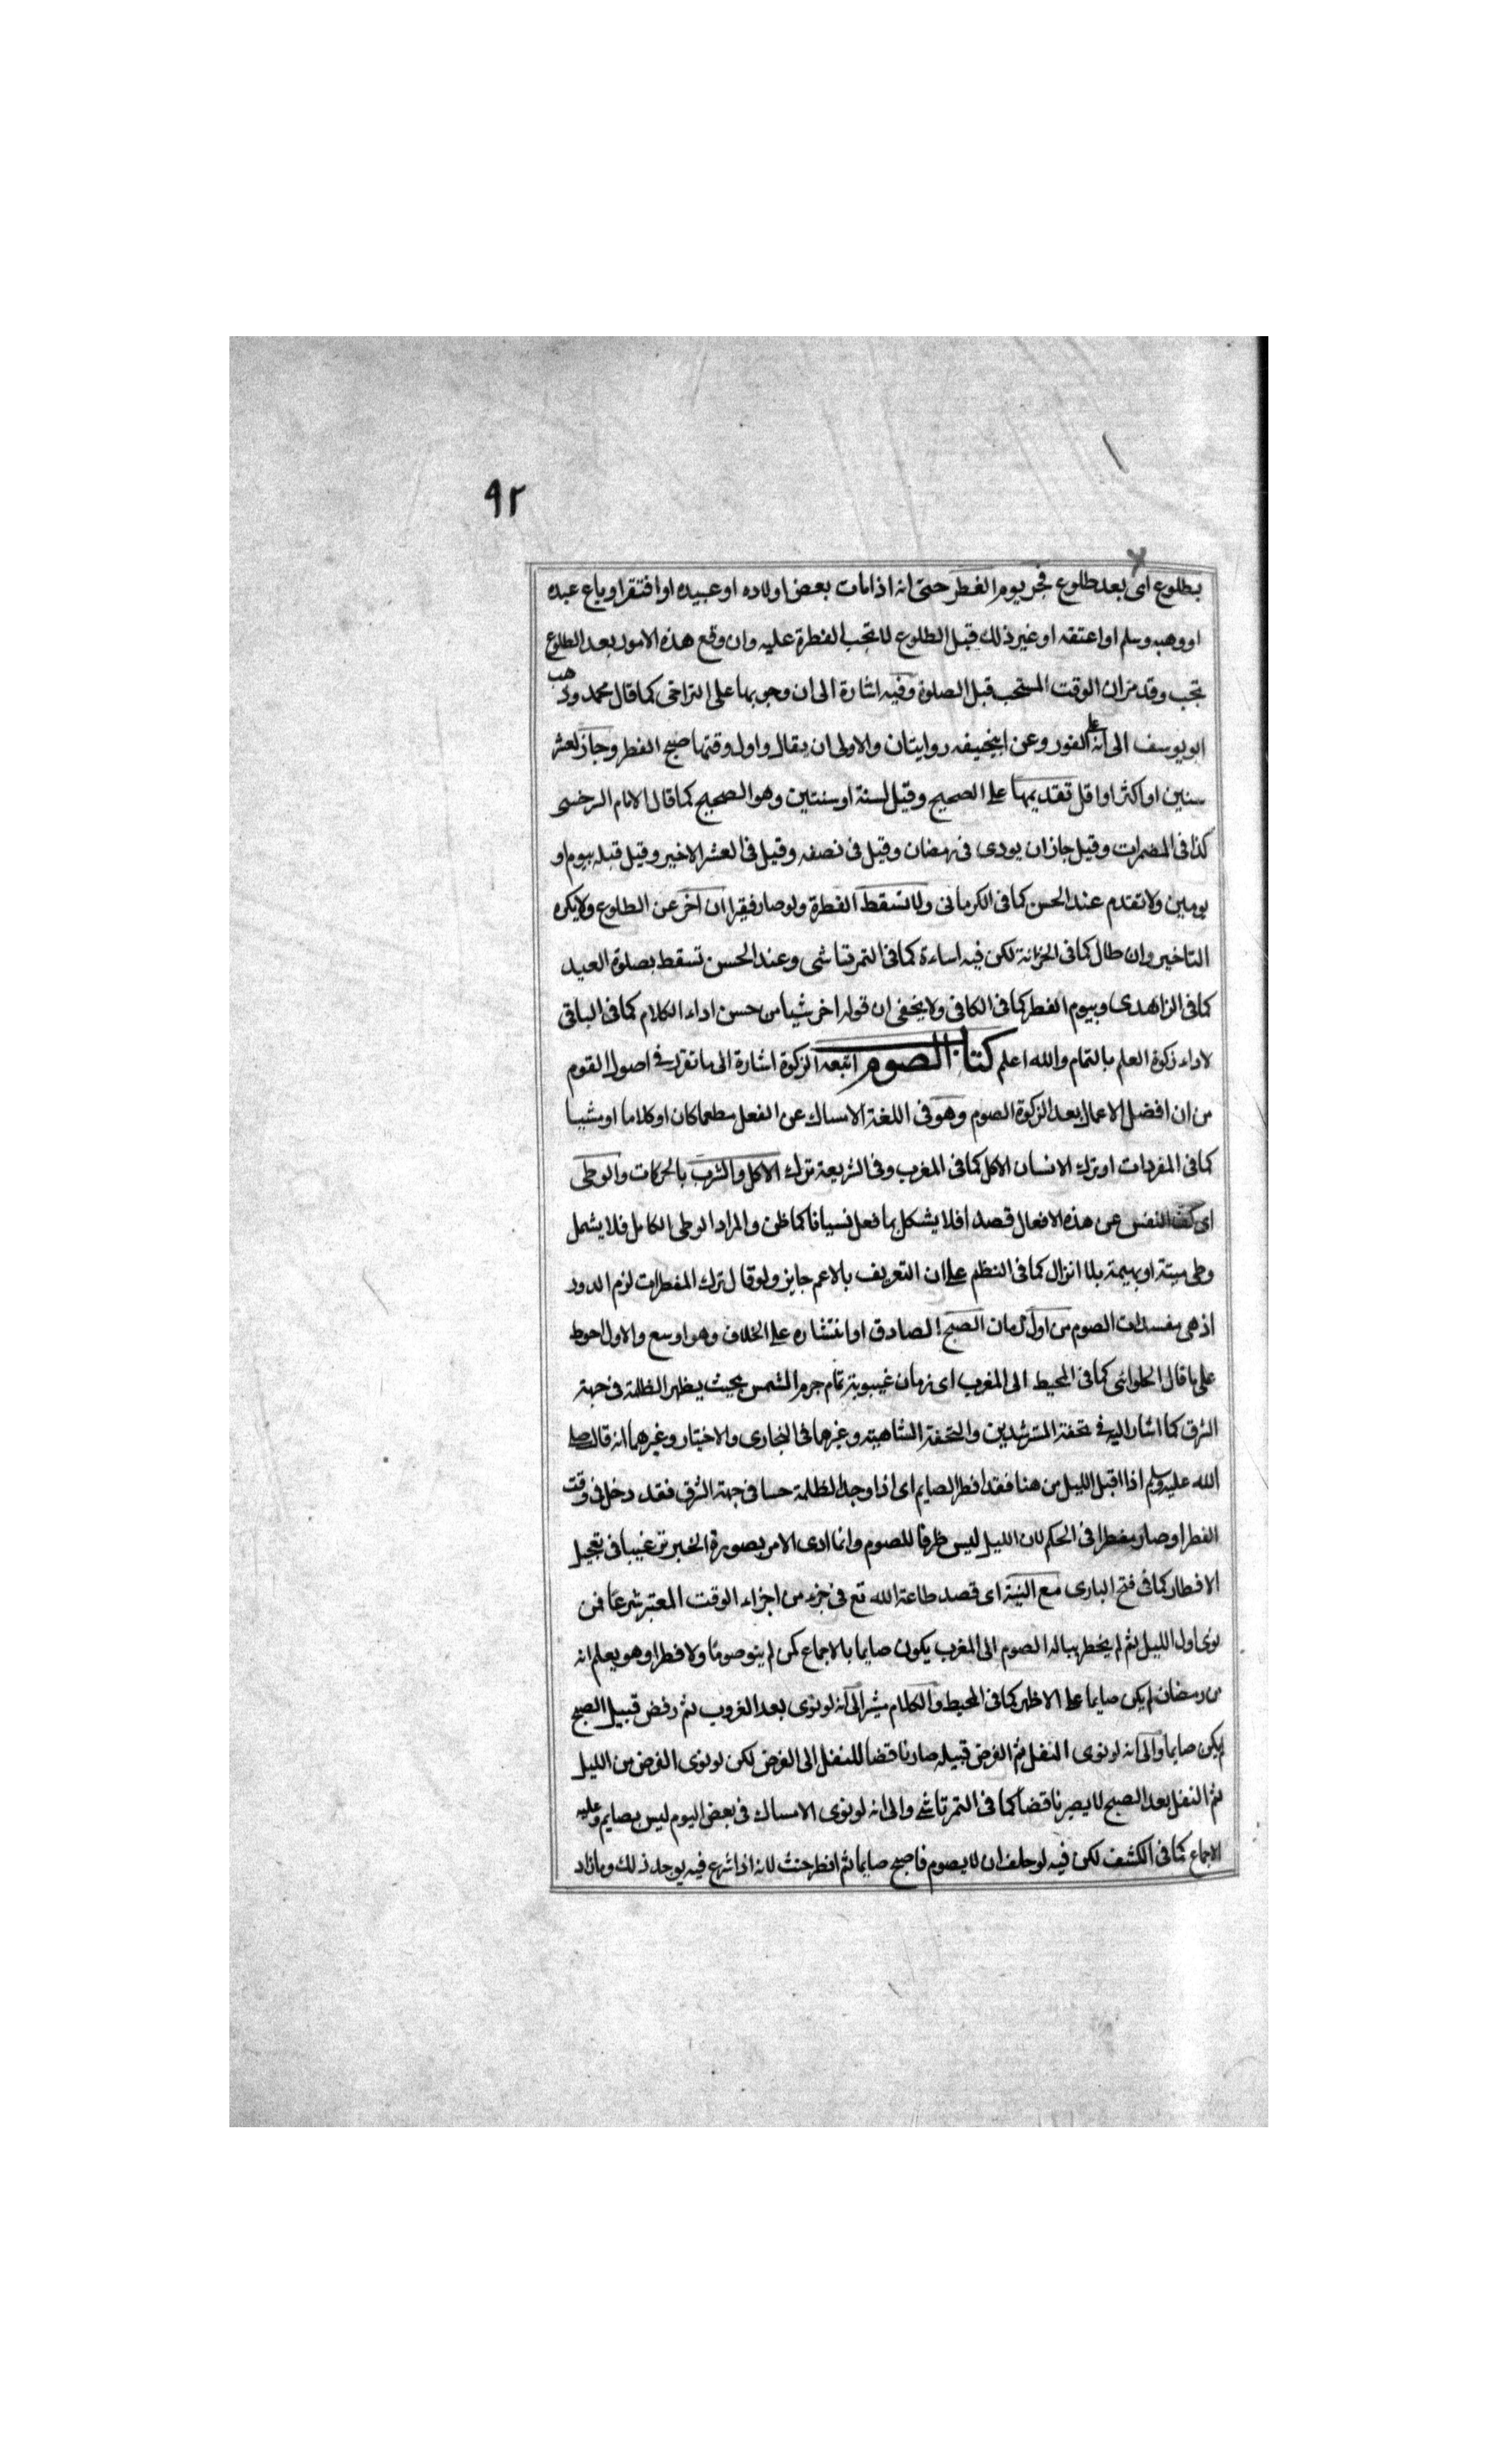 ٩٢
بطلوع اى بعد طلوع فجر يوم الفطر حتى انه اذا مات بعض اولاده او عبيده او افتقر او باع عبده
او وهبه وسلم او اعتقه او غير ذلك قبل الطلوع لا تجب الفطرة عليه وان وقع هذه الامور بعد الطلوع
تجب وقد مر ان الوقت المستحب قبل الصلوة وفيه اشارة الى ان وجوبها على التراخى كما قال محمد وذهب
ابو يوسف الى انه على الفور وعن ابيحنيفه روايتان والاولى ان يقال واول وقتها صبح الفطر وجاز لعشر
سنين او اكثر او اقل تقديمها على الصحيح وقيل لسنة او سنتين وهو الصحيح كما قال الامام السرخسى
كذا فى المضمرات وقيل جاز ان يودى فى رمضان وقيل فى نصفه وقيل فى العشر الاخير وقيل قبله بيوم او
يومين ولا تقدم عند الحسن كما فى الكرمانى ولا تسقط الفطرة ولو صار فقيرا ان اخر عن الطلوع ولا يكره
التاخير وان طال كما فى الخزانة لكن فيه اساءة كما فى التمرتاشى وعند الحسن تسقط بصلوة العيد
كما فى الزاهدى وبيوم الفطر كما فى الكافى ولا يخفى ان قوله اخر شيا من حسن اداء الكلام كما فى الباقى
لاداء زكوة العلم بالتمام والله اعلم كتاب الصوم اتبعه الزكوة اشارة الى ما تقرر فى اصول القوم
من ان افضل الاعمال بعد الزكوة الصوم وهو فى اللغة الامساك عن الفعل مطعما كان او كلاما او مشيا
كما فى المفردات او ترك الانسان الاكل كما فى المغرب وفى الشريعة ترك الاكل والشرب بالحركات والوطى
اى كف النفس عن هذه الافعال قصدا فلا يشكل بما فعل نسيانا كما ظن والمراد الوطى الكامل فلا يشمل
وطى ميتة او بهيمة بلا انزال كما فى النظم على ان التعريف بالاعم جايز ولو قال ترك المفطرات لزم الدور
اذ هى مفسدات الصوم من اول زمان الصبح الصادق او انتشاره على الخلاف وهو اوسع والاول احوط
على ما قال الحلوانى كما فى المحيط الى المغرب اى زمان غيبوبة تمام جرم الشمس بحيث يظهر الظلمة فى جهة
الشرق كما اشار اليه فى تحفة المسترشدين والتحفة الشاهية وغيرها فى البخارى والاختيار وغيرهما انه قال صلى
الله عليه وسلم اذا اقبل الليل من هنا فقد افطر الصايم اى اذا وجد الظلمة حسا فى جهة الشرق فقد دخل فى وقت
الفطر او صار مفطرا فى الحكم لان الليل ليس ظرفا للصوم وانما ادى الامر بصورة الخبر ترغيبا فى تعجيل
الافطار كما فى فتح البارى مع النية اى قصد طاعة الله تع فى جزء من اجزاء الوقت المعتبر شرعا فمن
نوى اول الليل ثم لم يخطر بباله الصوم الى المغرب يكون صايما بالاجماع كمن لم ينو صوما ولا فطرا وهو يعلم انه
من رمضان لم يكن صايما على الاظهر كما فى المحيط والكلام مشير الى انه لو نوى بعد الغروب ثم رفض قبيل الصبح
لم يكن صايما والى انه لو نوى النفل ثم الفرض قبيله صار ناقضا للنفل الى الفرض لكن لو نوى الفرض من الليل
ثم النفل بعد الصبح لا يصير ناقضا كما فى التمرتاشى والى انه لو نوى الامساك فى بعض اليوم ليس بصايم وعليه
الاجماع كما فى الكشف لكن فيه لو حلف ان لا يصوم فاصبح صايما ثم افطر حنث لانه اذا شرع فيه يوجد ذلك وما زاد